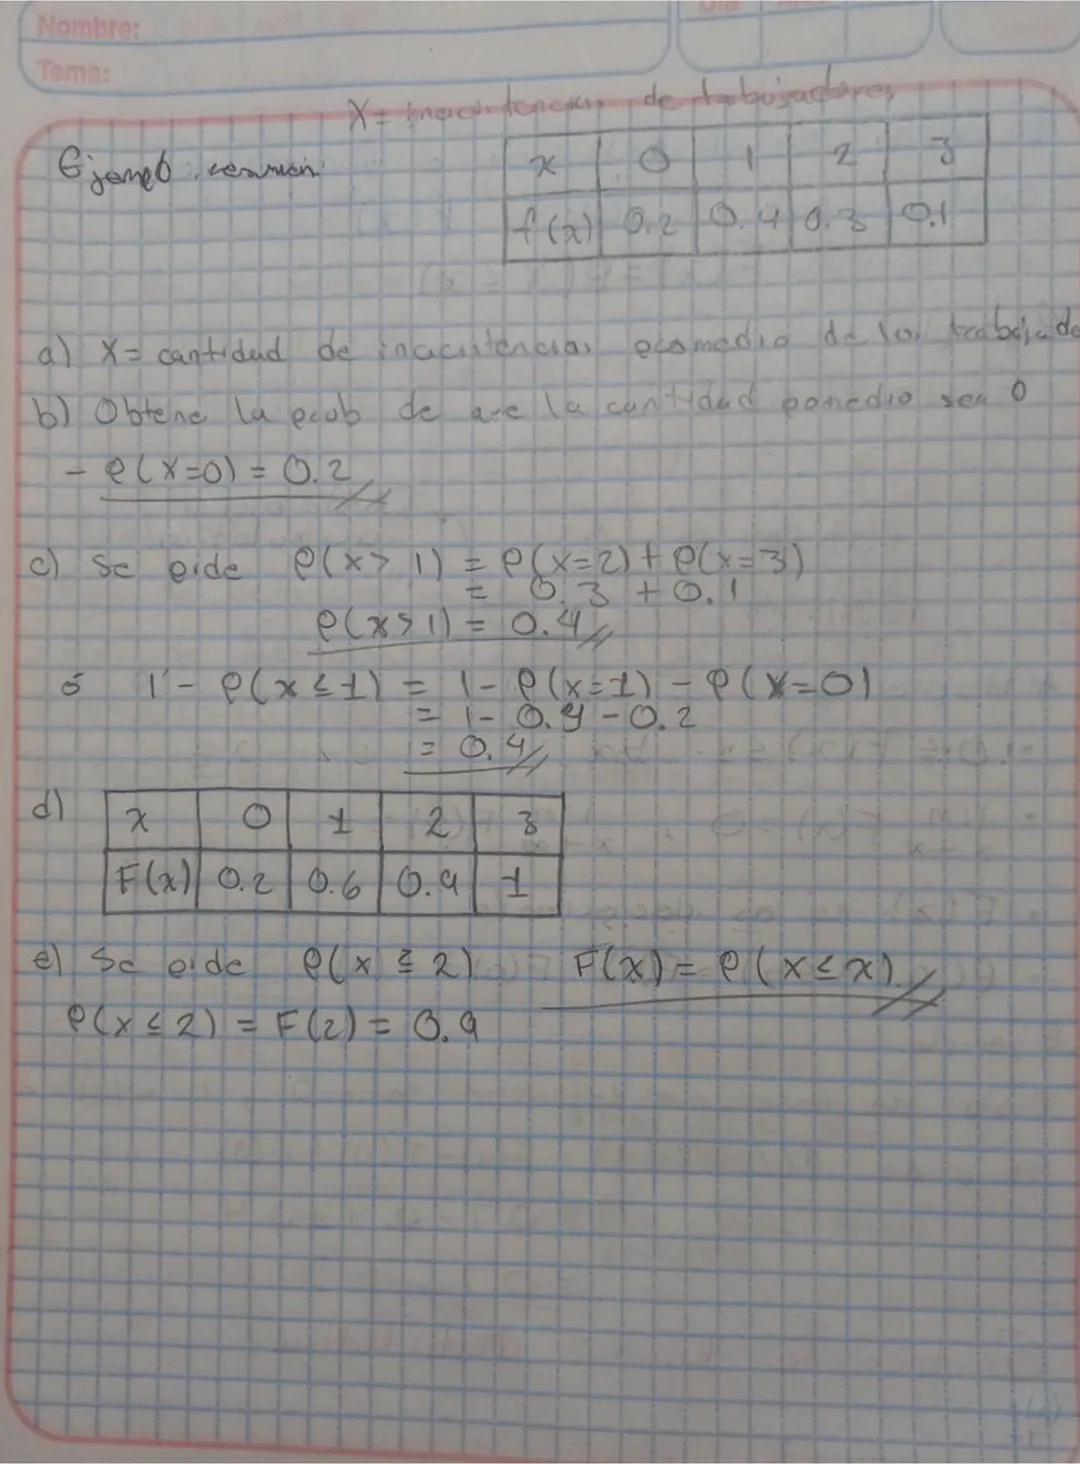 Nombre:
Tema:
X = inacistencias de trabajadores
Ejemplo resumen
x 0 1 2 3
f(x) 0.2 0.4 0.3 0.1
a) X = cantidad de inacistencias promedio de los trabajado
b) Obtene la prob de que la cantidad pomedio sea 0
- P(X=0) = 0.2
c) Se pide P(x > 1) = P(x=2) + P(x=3)
= 0.3 + 0.1
P(x > 1) = 0.4
ó 1 - P(x ≤ 1) = 1 - P(x=1) - P(x=0)
= 1 - 0.4 - 0.2
= 0.4
d) x 0 1 2 3
F(x) 0.2 0.6 0.9 1
e) Se pide P(x ≤ 2) F(x) = P(x ≤ x)
P(x ≤ 2) = F(2) = 0.9